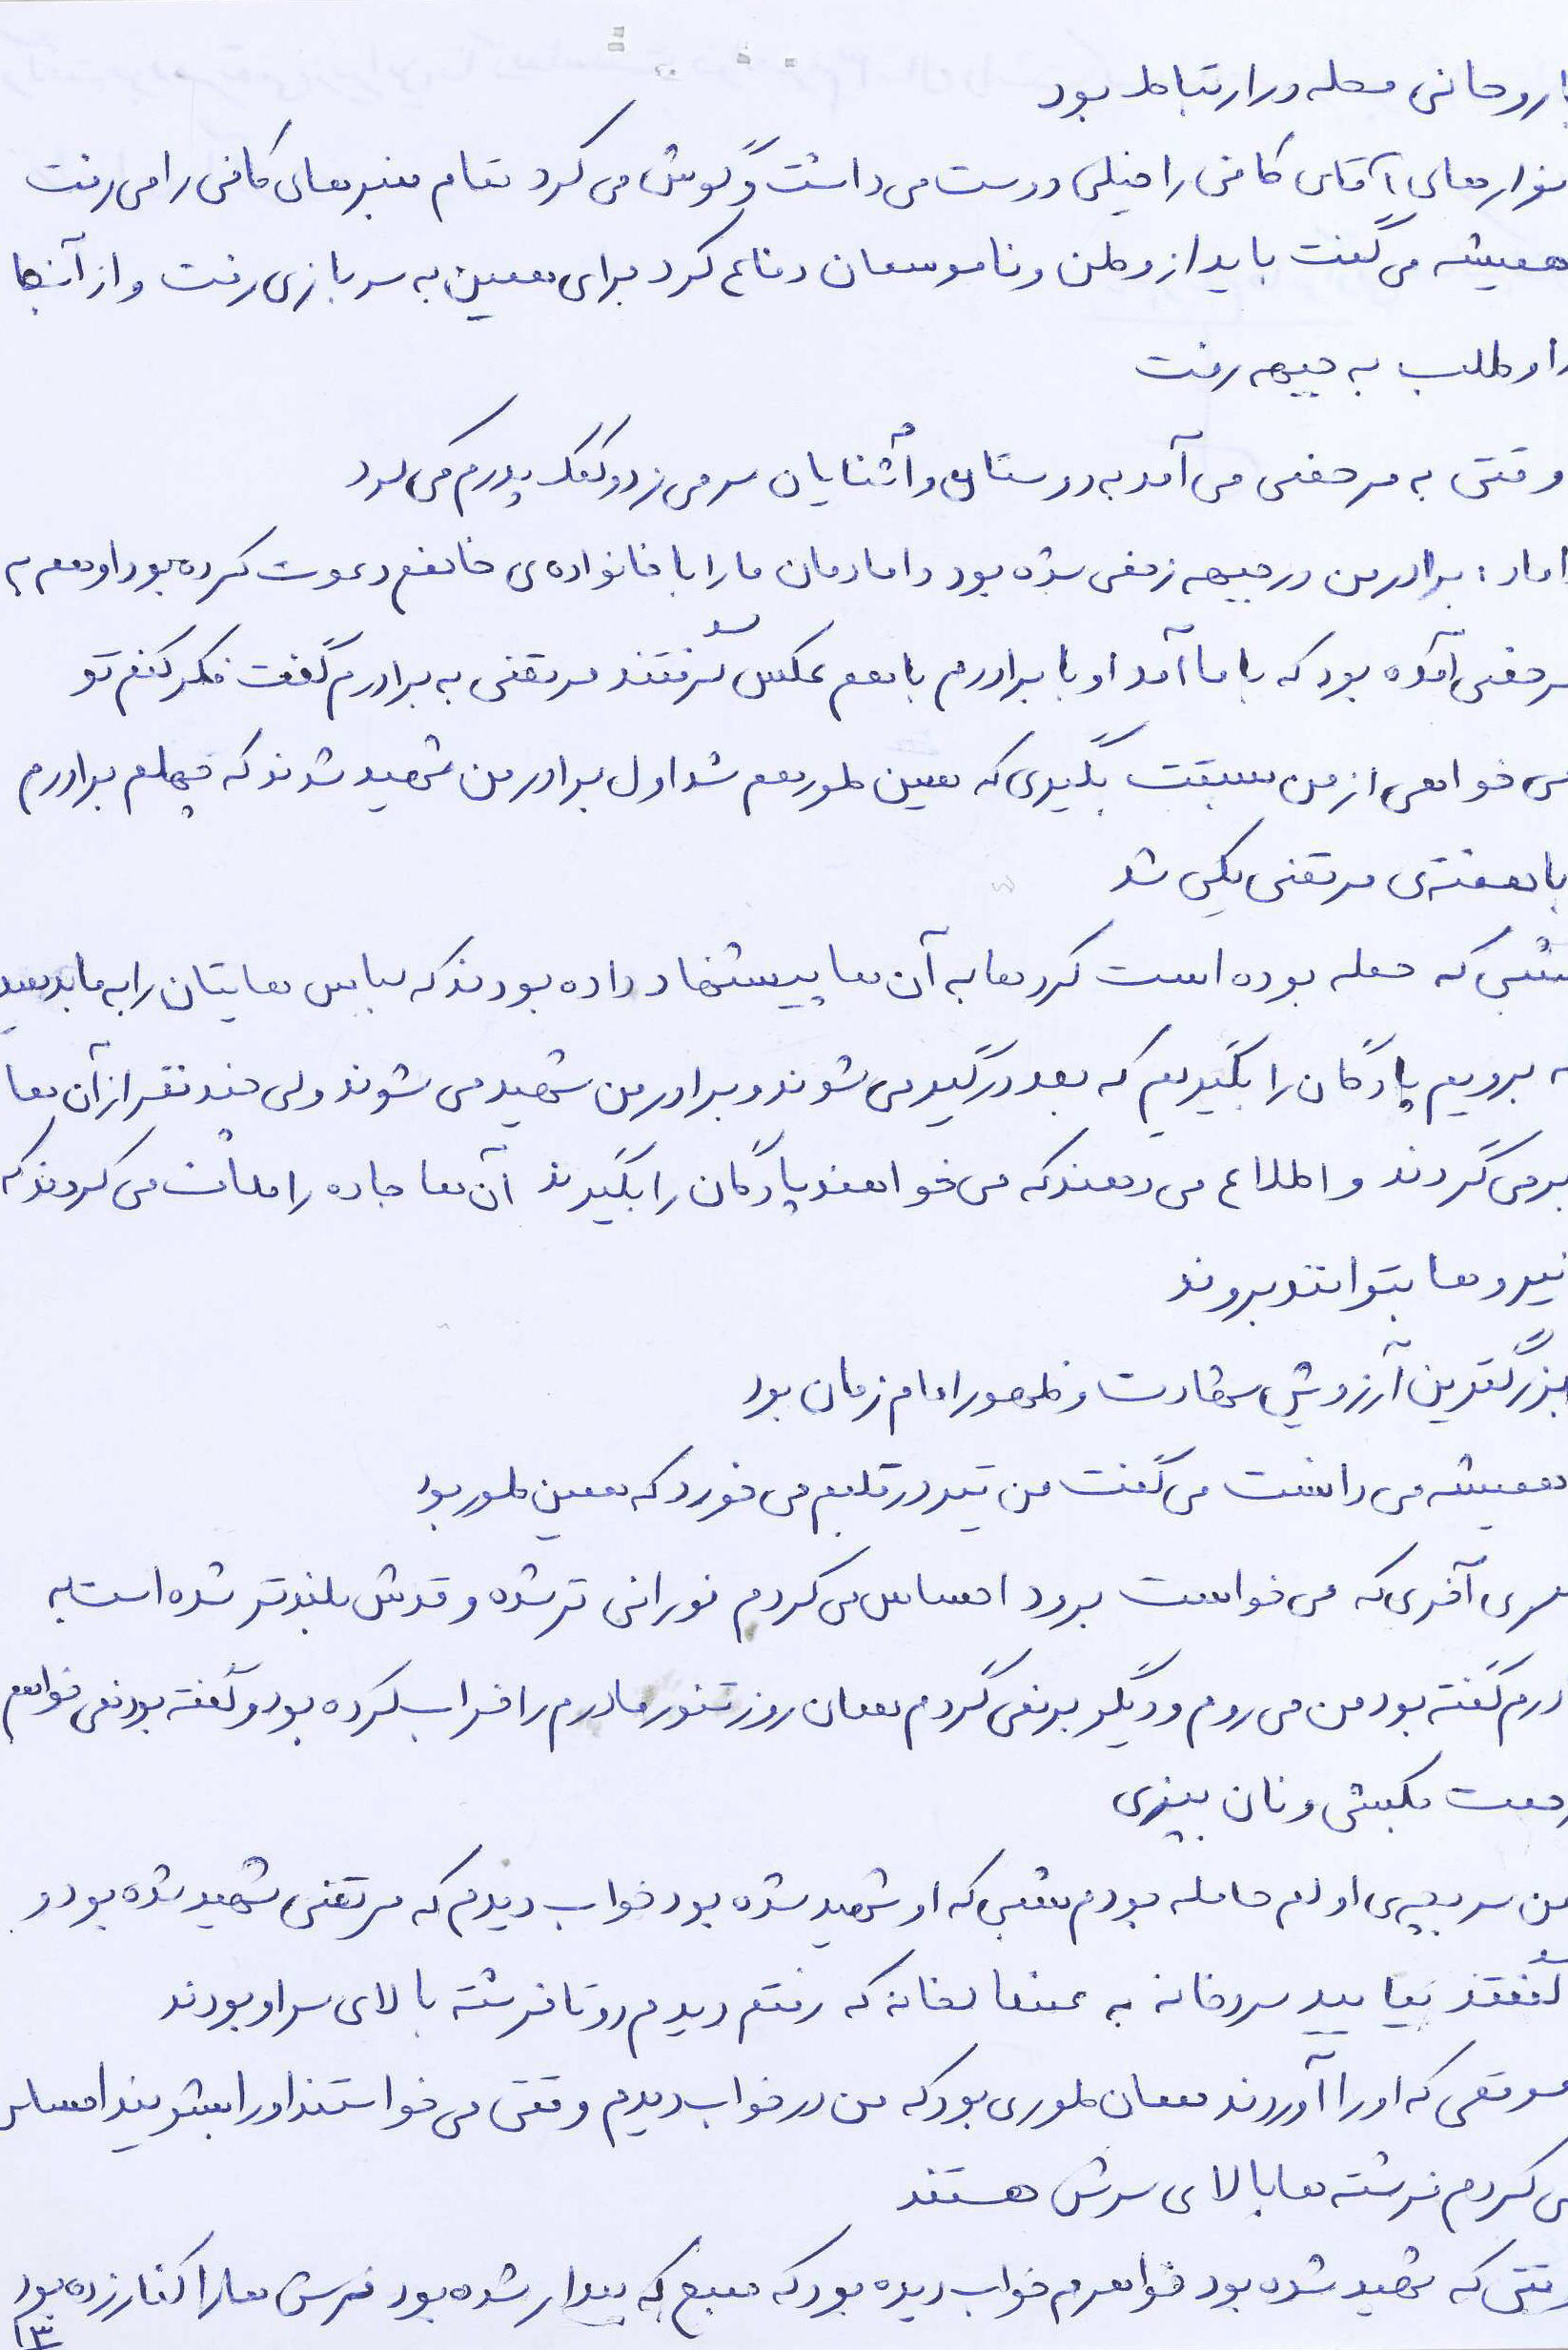 با روحانی محله در ارتباط بود
نوارهای آقای کافی را خیلی دوست می داشت و گوش می کرد تمام منبرهای کافی را می رفت
همیشه می گفت باید از وطن و ناموسمان دفاع کرد برای همین به سربازی رفت و از آنجا
داوطلب به جبهه رفت
وقتی به مرخصی می آمد به دوستان و آشنایان سر می زد و کمک پدرم می کرد
داماد: برادر من در جبهه زخمی شده بود دامادمان ما را با خانواده ی خانمم دعوت کرده بود او هم به
مرخصی آمده بود که با ما آمد او با برادرم با هم عکس گرفتند مرتضی به برادرم گفت فکر کنم تو
می خواهی از من سبقت بگیری که همین طور هم شد اول برادر من شهید شدند که چهلم برادرم
با هفته ی مرتضی یکی شد
شبی که حمله بوده است کردها به آن ها پیشنهاد داده بودند که لباس هایتان را به ما بدهید
که برویم پادگان را بگیریم که بعد درگیر می شوند و برادر من شهید می شوند ولی چند نفر از آن ها
برمی گردند و اطلاع می دهند که می خواهند پادگان را بگیرند آن ها جاده را می کردند که
نیروها بتوانند بروند
بزرگترین آرزویش شهادت و ظهور امام زمان بود
همیشه می دانست می گفت من تیر در قلبم می خورد که همین طور بود
سری آخری که می خواست برود احساس می کردم نورانی تر شده و قدش بلندتر شده است به
مادرم گفته بود من می روم و دیگر برنمی گردم همان روز تنور مادرم را خراب کرده بود و گفته بود نمی خواهم
زحمت بکشی و نان بپزی
من سر بچه ی اولم حامله بودم شبی که او شهید شده بود خواب دیدم که مرتضی شهید شده بود و
گفتند بیایید سردخانه به غسالخانه که رفتم دیدم دو تا فرشته بالای سر او بودند
موقعی که او را آوردند همان طوری بود که من در خواب دیدم وقتی می خواستند او را بشویند احساس
می کردم فرشته ها بالای سرش هستند
وقتی که شهید شده بود خواهرم خواب دیده بود که صبح که بیدار شده بود فرش ها را کنار زده بود
۳